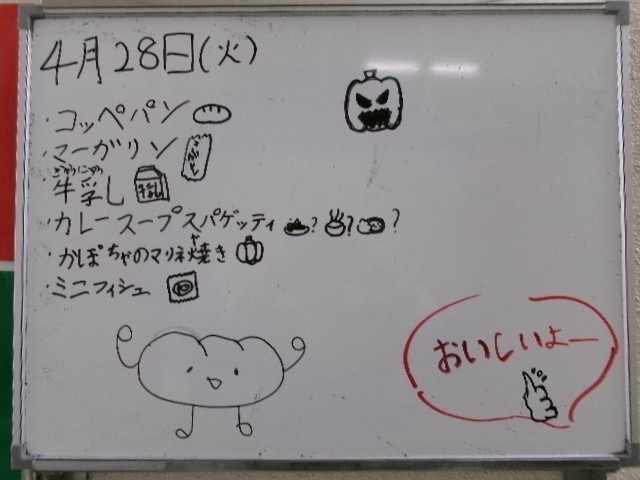 4月28日(火)
・コッペパン
・マーガリン
ぎゅうにゅう
・牛乳し
・カレースープスパゲッティ ? ? ?
・かぼちゃのマリネ焼き
や
・ミニフィシュ
おいしいよー